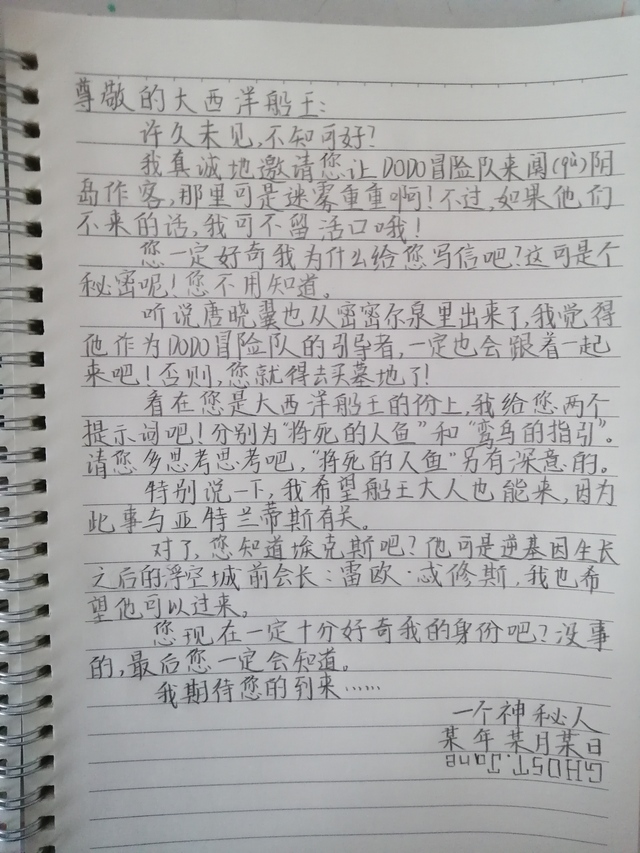 尊敬的大西洋船王:
许久未见,不知可好?
我真诚地邀请您让DODO冒险队来阒(qù)阴
岛作客,那里可是迷雾重重啊!不过,如果他们
不来的话,我可不留活口哦!
您一定好奇我为什么给您写信吧?这可是个
秘密呢!您不用知道。
听说唐晓翼也从密密尔泉里出来了,我觉得
他作为DODO冒险队的引导者,一定也会跟着一起
来吧!否则,您就得去买墓地了!
看在您是大西洋船王的份上,我给您两个
提示词吧!分别为“将死的人鱼”和“鸾鸟的指引”。
请您多思考思考吧,“将死的人鱼”另有深意的。
特别说一下,我希望船王大人也能来,因为
此事与亚特兰蒂斯有关。
对了,您知道埃克斯吧?他可是逆基因生长
之后的浮空城前会长:雷欧·忒修斯,我也希
望他可以过来。
您现在一定十分好奇我的身份吧?没事
的,最后您一定会知道。
我期待您的到来……
一个神秘人
某年某月某日
GHOST.Jane